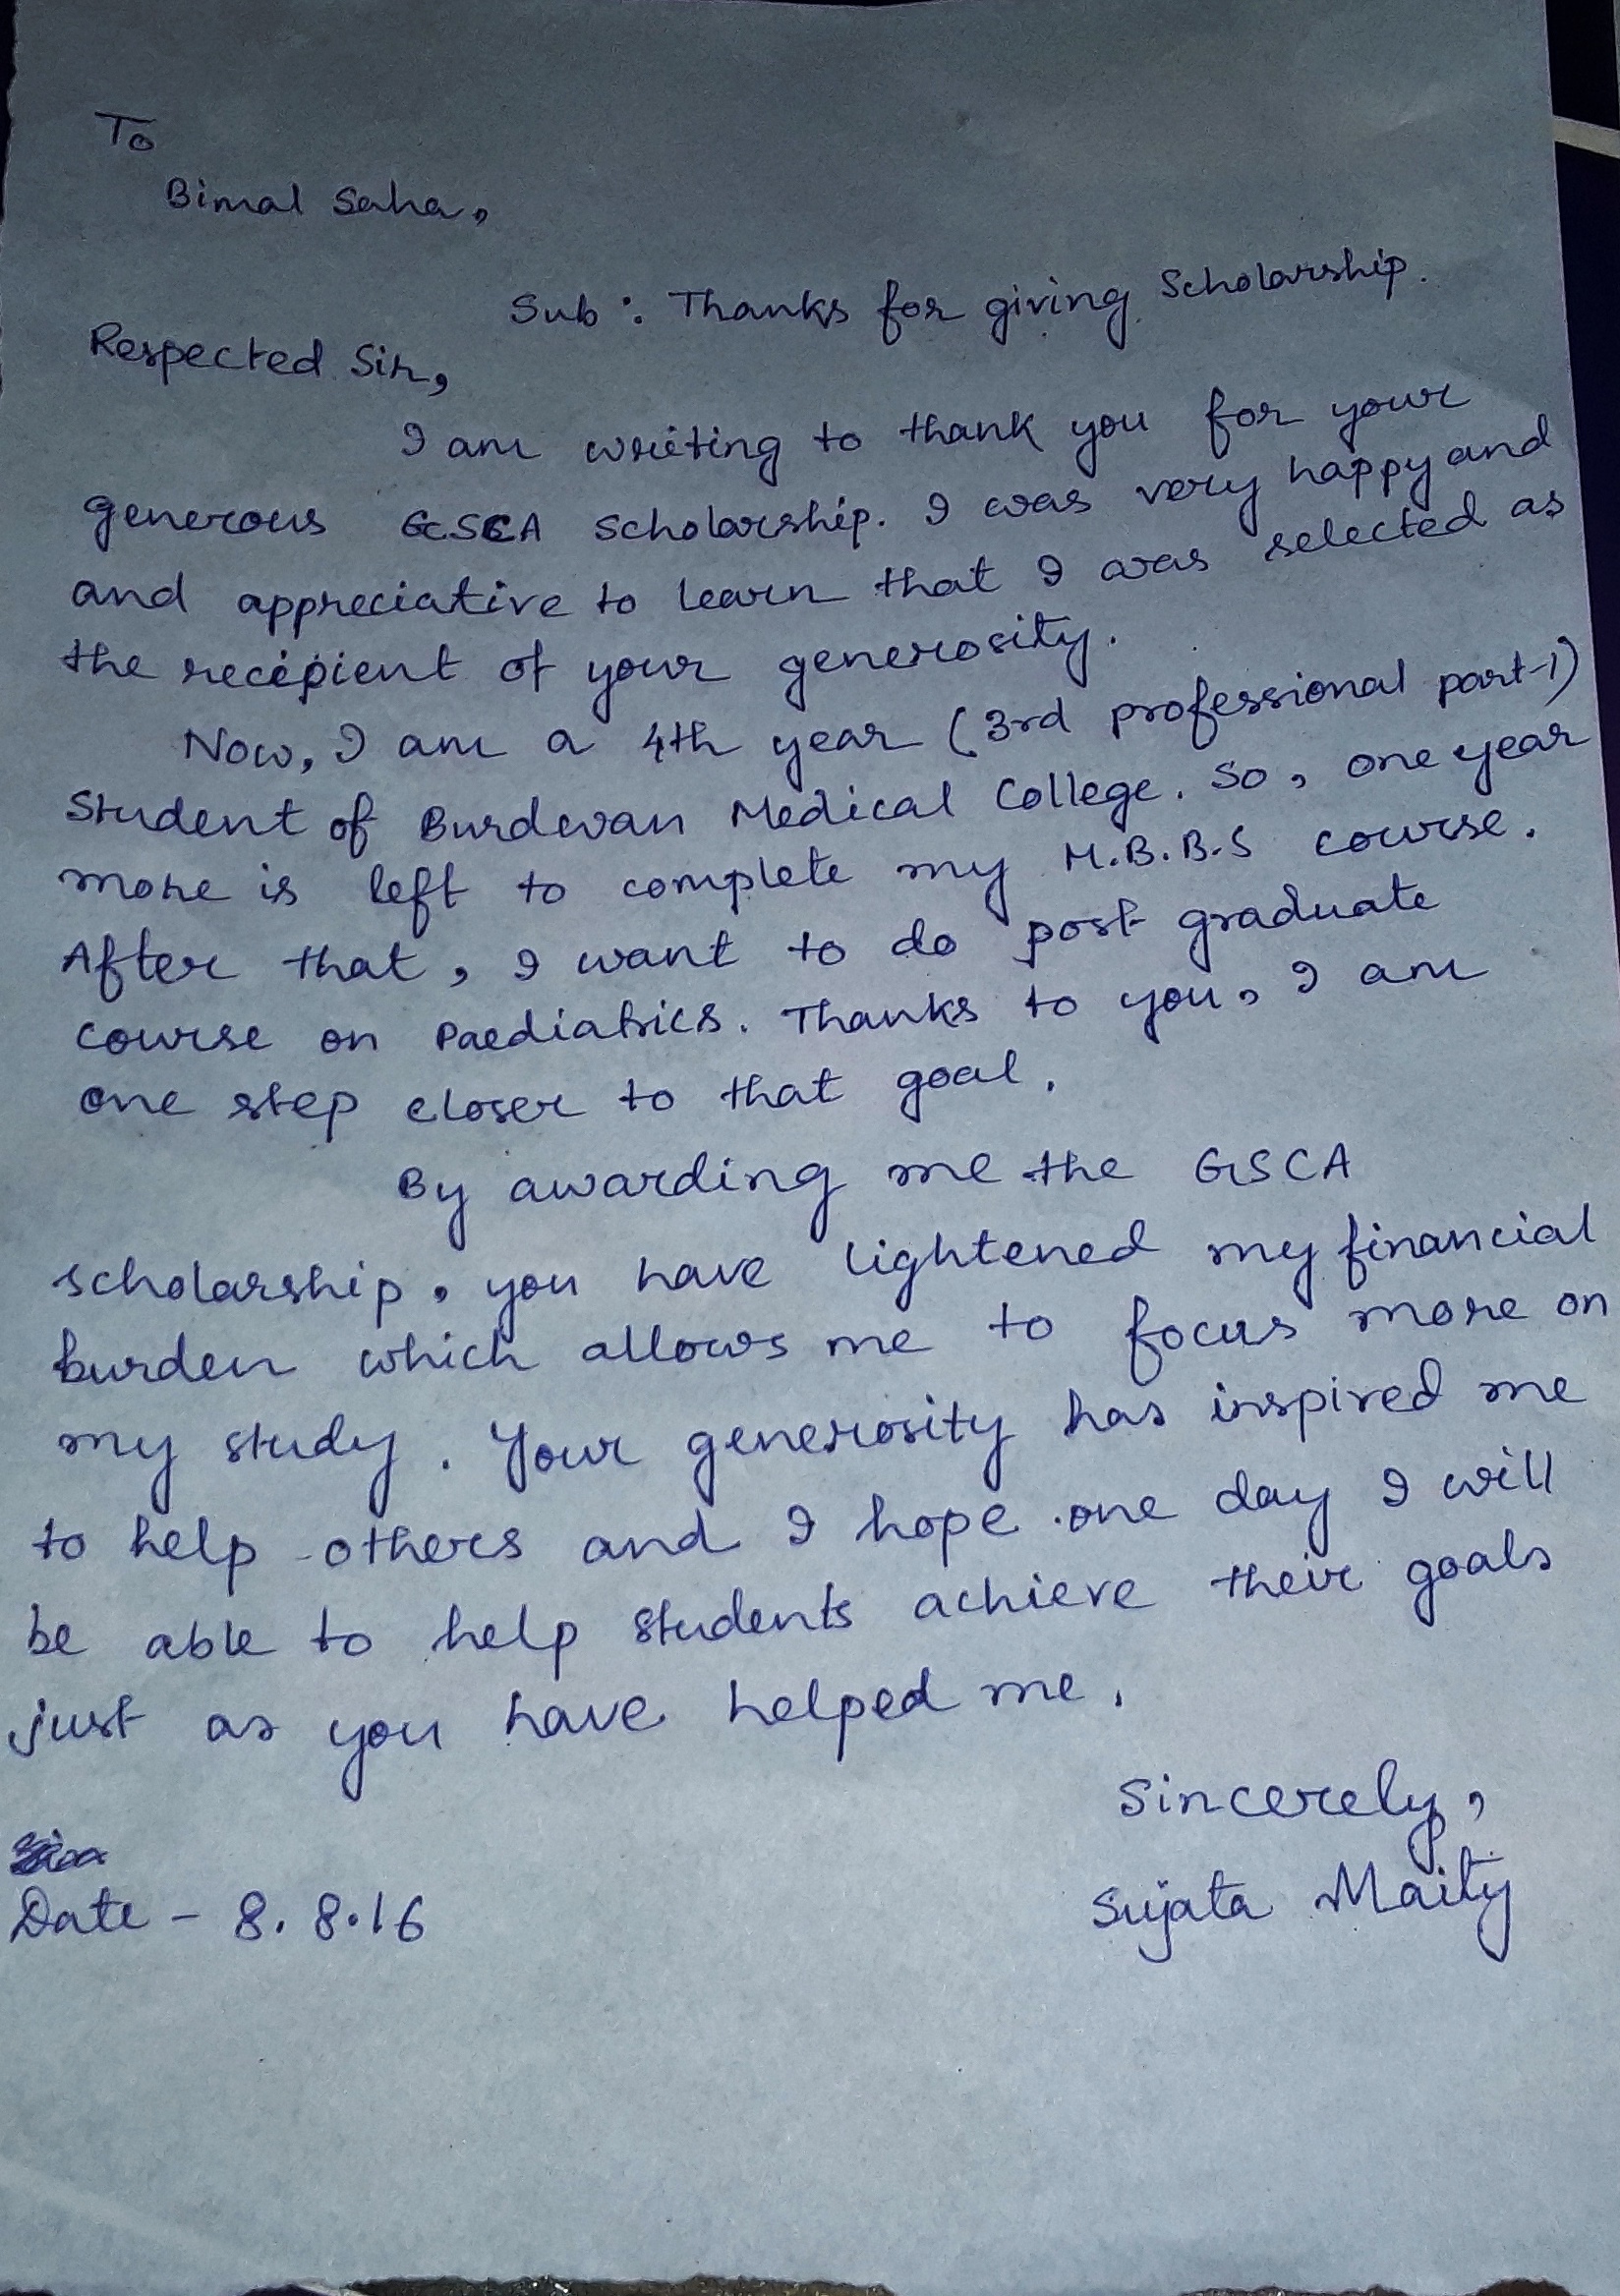 To
Bimal Saha,
Sub : Thanks for giving Scholarship.
Respected Sir,
I am writing to thank you for your
generous GSCA Scholarship. I was very happy and
and appreciative to learn that I was selected as
the recipient of your generosity.
Now, I am a 4th year (3rd professional part-1)
Student of Burdwan Medical College. So, one year
more is left to complete my M.B.B.S course.
After that, I want to do post graduate
course on Paediatrics. Thanks to you, I am
one step closer to that goal.
By awarding me the GSCA
scholarship, you have lightened my financial
burden which allows me to focus more on
my study. Your generosity has inspired me
to help others and I hope one day I will
be able to help students achieve their goals
just as you have helped me.
Sincerely,
Sujata Maity
Date - 8.8.16